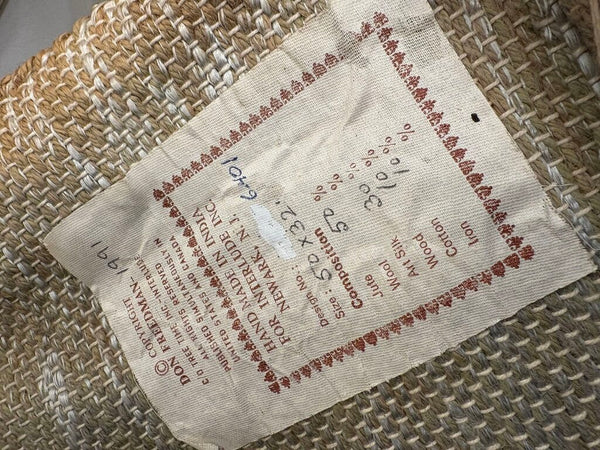 30
HAND MADE IN INDIA
FOR INTERLUDE INC.
NEWARK, N.J.
Design No.: 6401
Size : 50 x 32'
Composition
Jute 50 %
Wool %
Art Silk 30 %
Wood 10 %
Cotton 10 %
Iron %
© COPYRIGHT 1991
DON FREEDMAN
C/O TREE TIME INC./INTERLUDE
ALL RIGHTS RESERVED
PUBLISHED SIMULTANEOUSLY IN
UNITED STATES AND CANADA